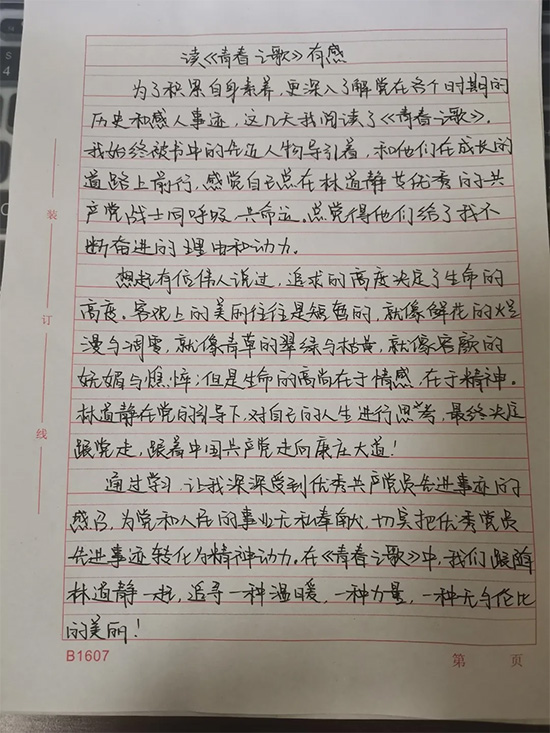 读《青春之歌》有感
为了积累自身素养，更深入了解党在各个时期的
历史和感人事迹，这几天我阅读了《青春之歌》。
我始终被书中的先进人物导引着，和他们在成长的
道路上前行，感觉自己总在和林道静等优秀的共
产党战士同呼吸共命运。总觉得他们给了我不
断奋进的理由和动力。
想起有位伟人说过，追求的高度决定了生命的
高度。客观上的美丽往往是短暂的，就像鲜花的烂
漫与凋零，就像青草的翠绿与枯黄，就像容颜的
妩媚与憔悴；但是生命的高尚在于情感，在于精神。
林道静在党的引导下，对自己的人生进行思考，最终决定
跟党走，跟着中国共产党走向康庄大道！
通过学习，让我深深受到优秀共产党员先进事迹的
感召，为党和人民的事业无私奉献，切实把优秀党员
先进事迹转化为精神动力。在《青春之歌》中，我们跟随
林道静一起，追寻一种温暖，一种力量，一种无与伦比
的美丽！
装
订
线
B1607
第 页
S
4